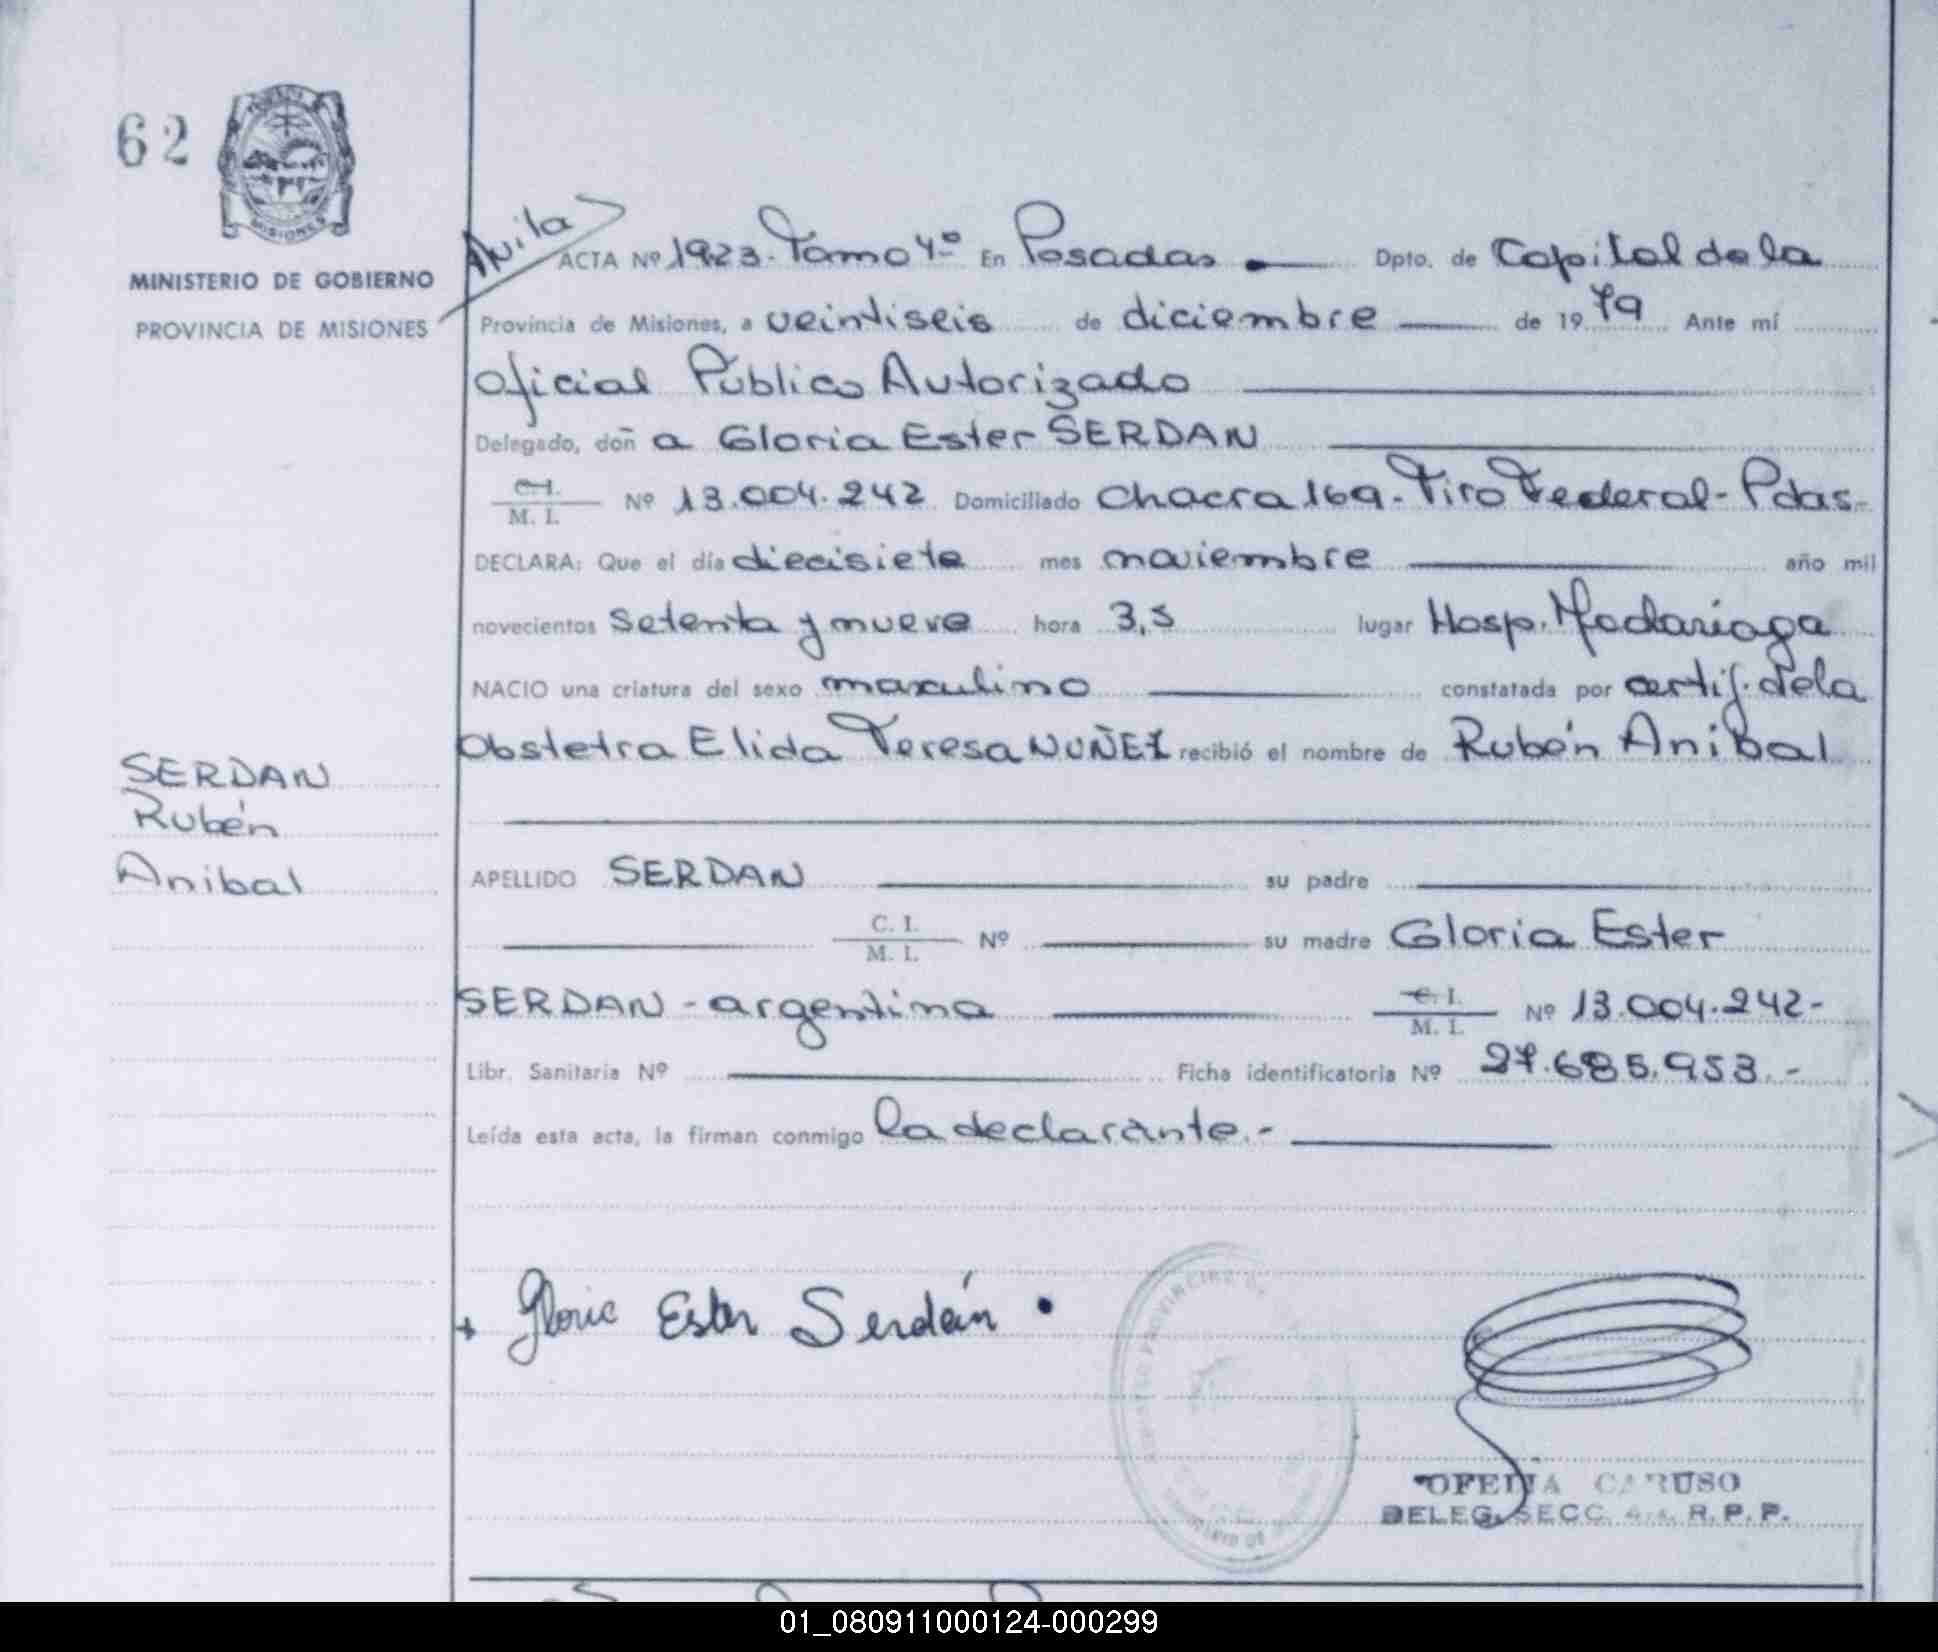 62
MINISTERIO DE GOBIERNO
PROVINCIA DE MISIONES
Avila
ACTA Nº 1923. Tomo 4º En Posadas Dpto. de Capital de la
Provincia de Misiones, a veintiseis de diciembre de 1979 Ante mí
Oficial Público Autorizado
Delegado, doña Gloria Ester SERDAN
C.I. M. I. Nº 13.004.242 Domiciliado Chacra 169-Tiro Federal-Pdas-
DECLARA: Que el día diecisiete mes noviembre año mil
novecientos setenta y nueve hora 3,5 lugar Hosp. Madariaga
NACIO una criatura del sexo masculino constatada por certif. de la
Obstetra Elida Teresa NUÑEZ recibió el nombre de Rubén Anibal
SERDAN
Rubén
Anibal
APELLIDO SERDAN su padre
C. I. M. I. Nº su madre Gloria Ester
SERDAN - argentina C. I. M. I. Nº 13.004.242-
Libr. Sanitaria Nº Ficha identificatoria Nº 27.685.953.-
Leída esta acta, la firman conmigo la declarante.-
Gloria Ester Serdán
OFELIA CARUSO
DELEG. SECC. R. P. P.
01_080911000124-000299